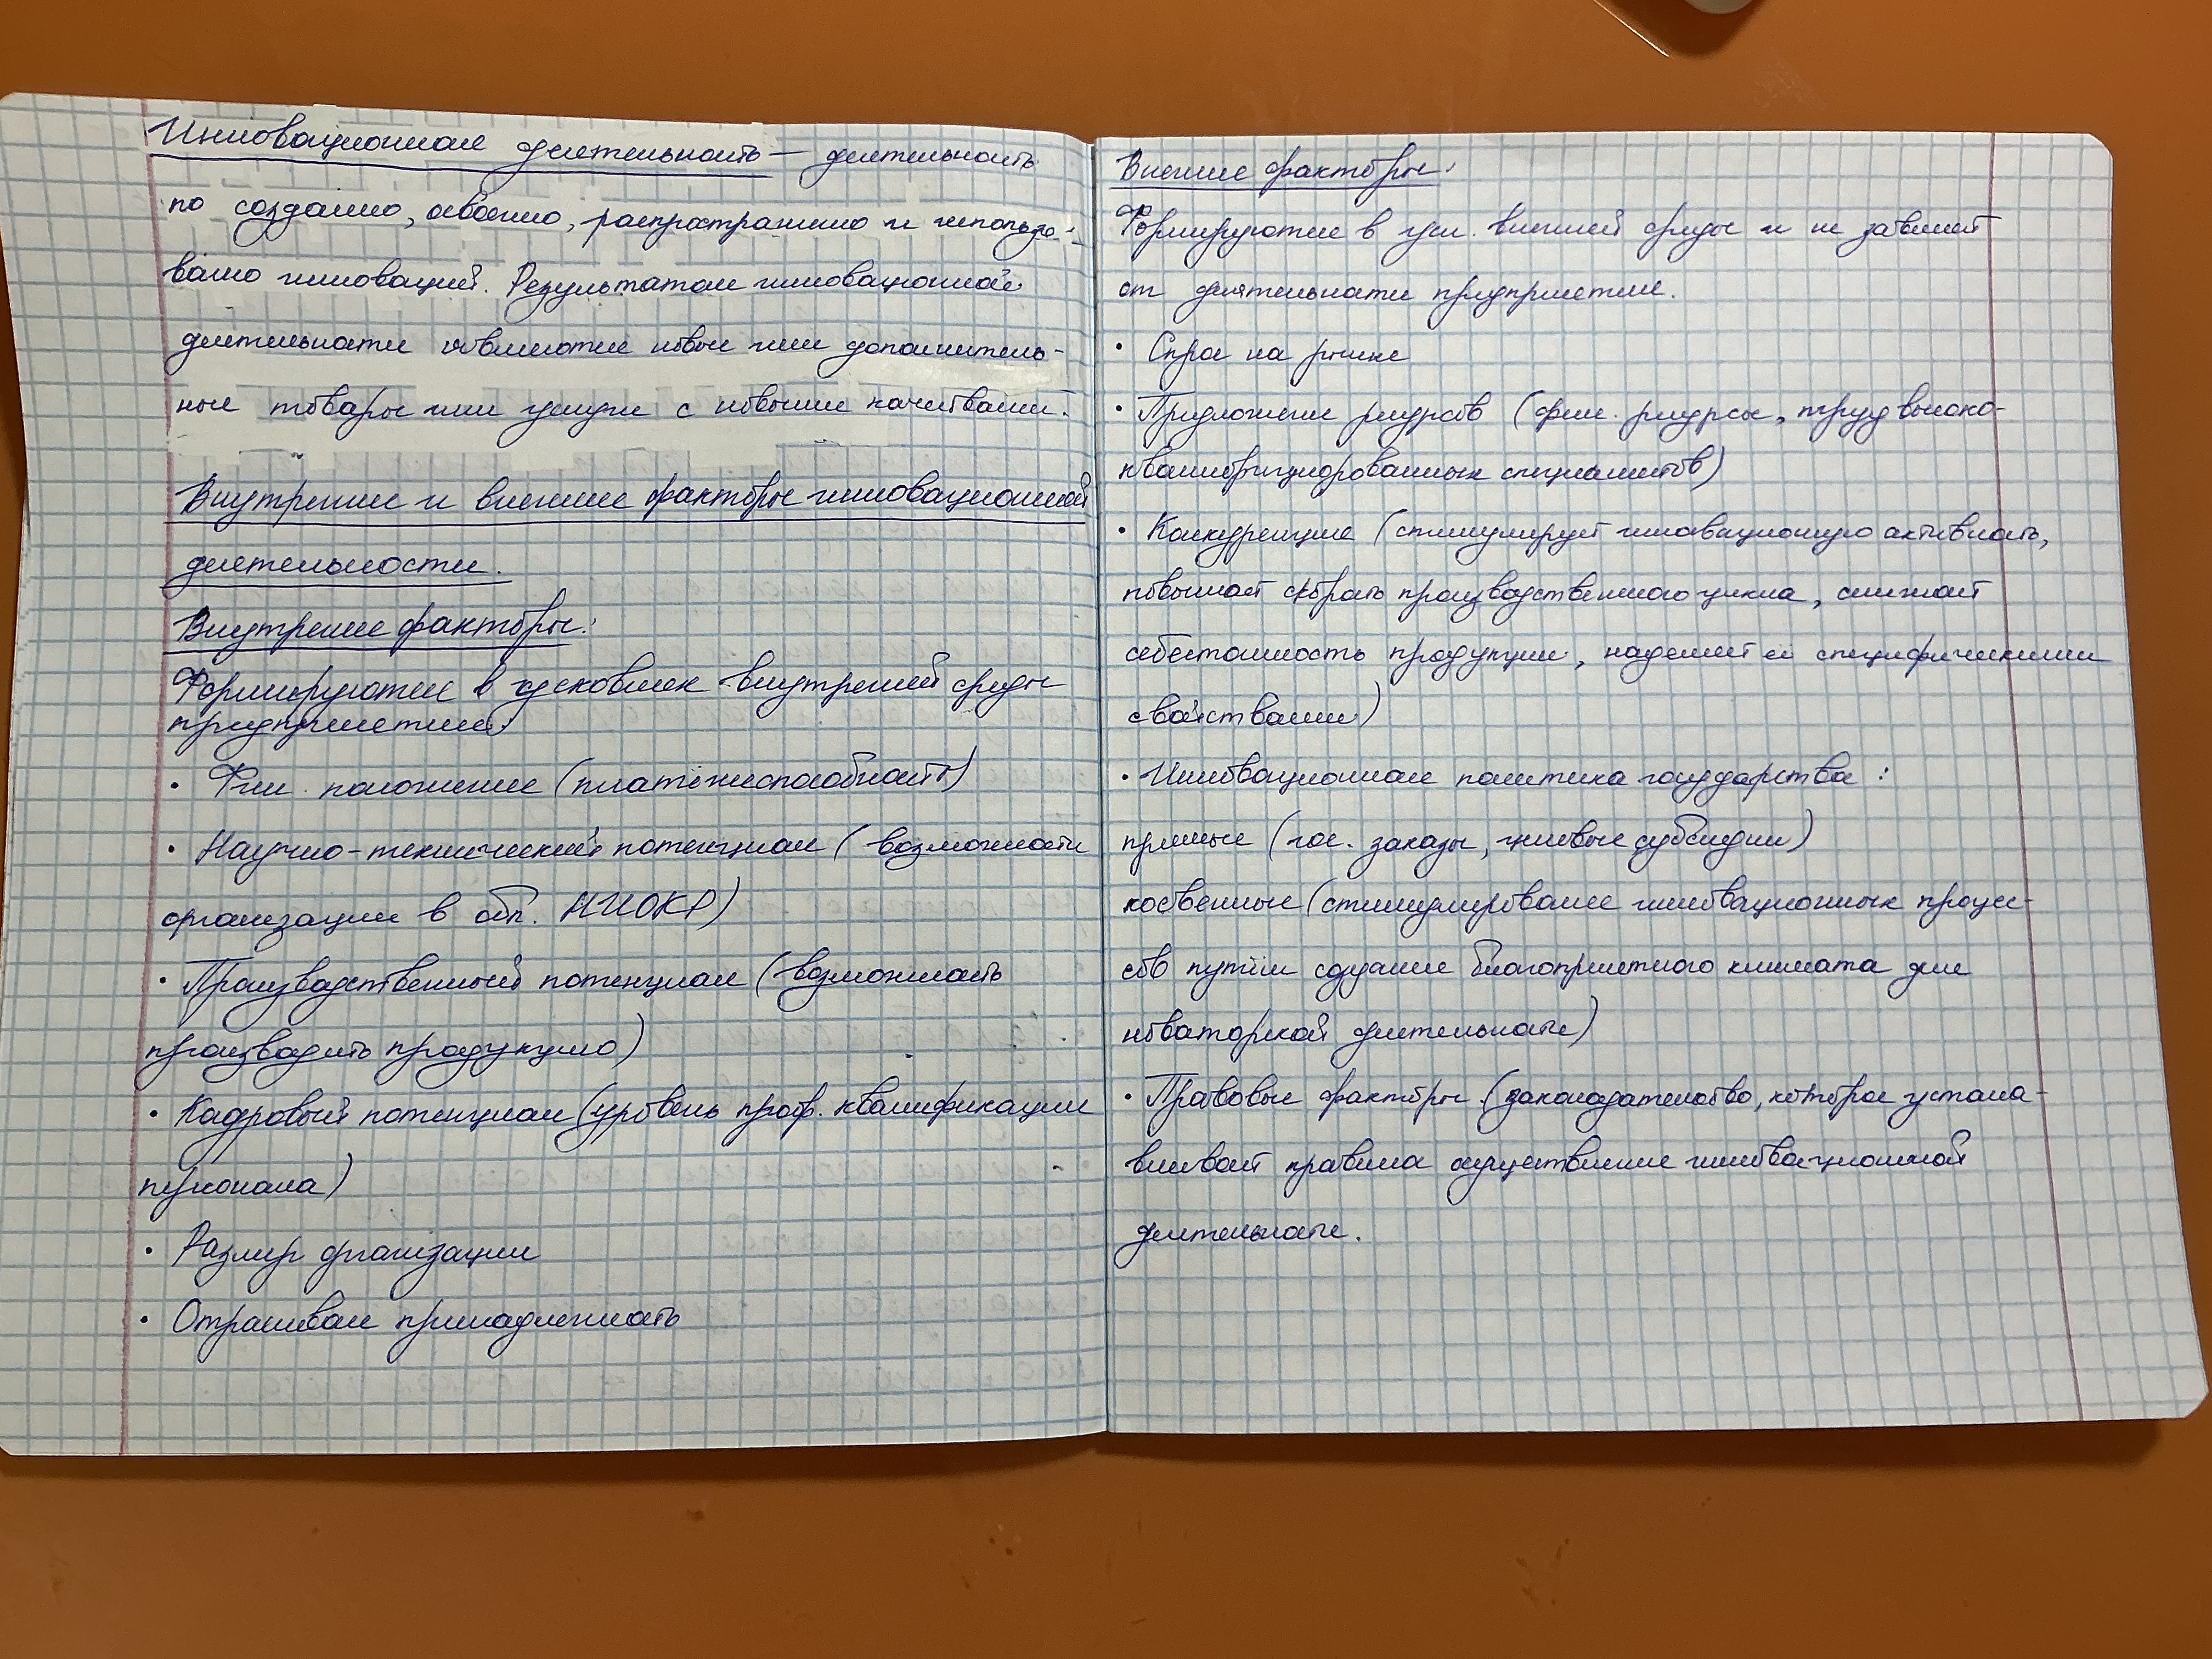 Инновационная деятельность — деятельность
по созданию, освоению, распространению и использо-
ванию инноваций. Результатом инновационной
деятельности являются новые или дополнитель-
ные товары или услуги с новыми качествами.
Внутренние и внешние факторы инновационной
деятельности.
Внутренние факторы:
Формируются в условиях внутренней среды
предприятия
• Фин. положение (платёжеспособность)
• Научно-технический потенциал (возможности
организации в обл. НИОКР)
• Производственный потенциал (возможность
производить продукцию)
• Кадровый потенциал (уровень проф. квалификации
персонала)
• Размер организации
• Отраслевая принадлежность
Внешние факторы:
Формируются в усл. внешней среды и не зависят
от деятельности предприятия.
• Спрос на рынке
• Предложение ресурсов (фин. ресурсы, труд высоко-
квалифицированных специалистов)
• Конкуренция (стимулирует инновационную активность,
повышает скорость производственного цикла, снижает
себестоимость продукции, наделяет её специфическими
свойствами)
• Инновационная политика государства:
прямые (гос. заказы, целевые субсидии)
косвенные (стимулирование инновационных процес-
сов путём создания благоприятного климата для
новаторской деятельности)
• Правовые факторы (законодательство, которое устана-
вливает правила осуществления инновационной
деятельности.